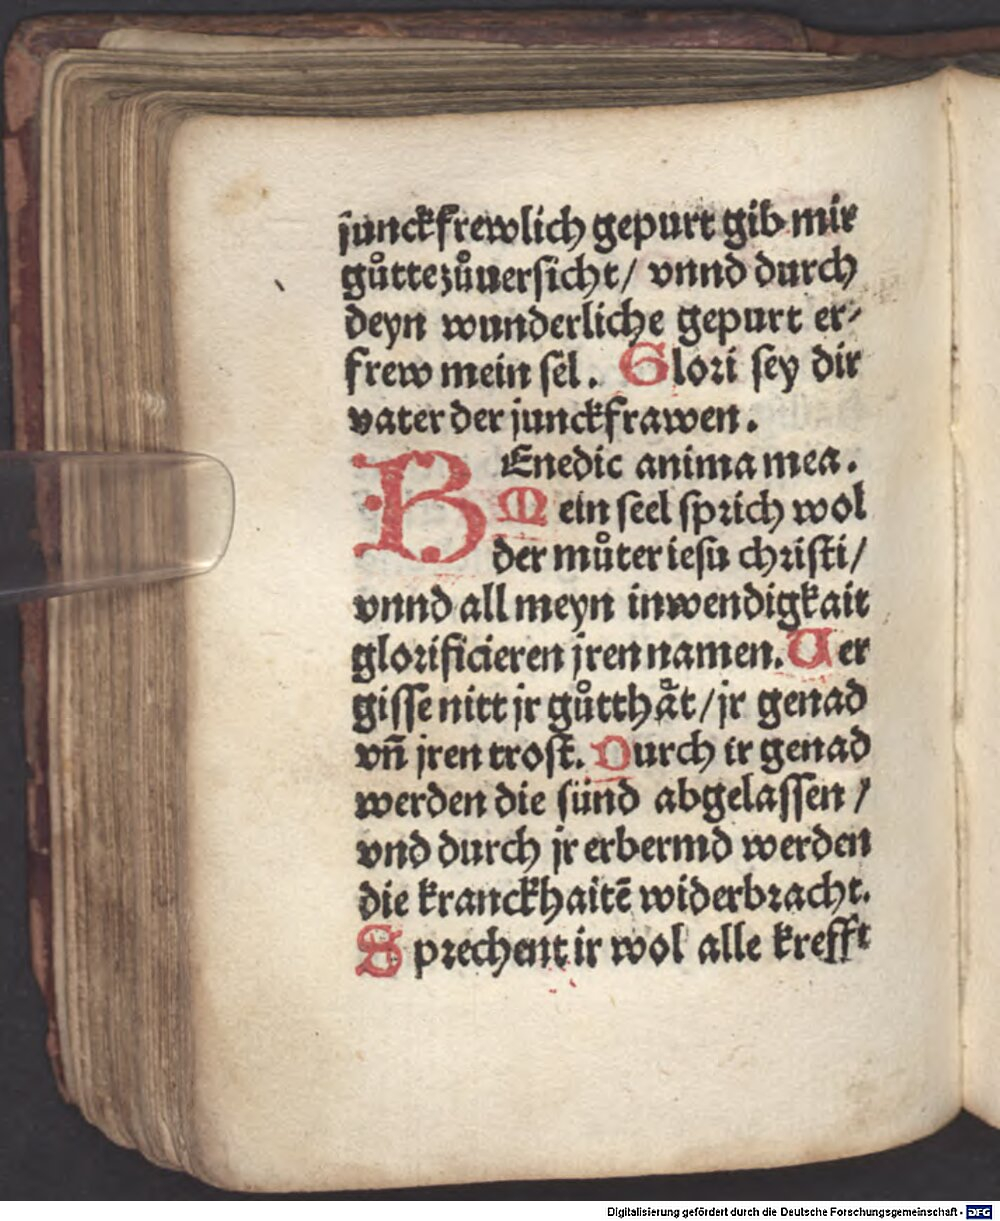 junckfrewlich gepurt gib mir
gůtte zůuersicht/ vnnd durch
deyn wunderliche gepurt er⸗
frew mein sel. Glori sey dir
vater der junckfrawen.
BEnedic anima mea.
Mein seel sprich wol
der můter iesu christi/
vnnd all meyn inwendigkait
glorificieren jren namen. Ver
gisse nitt jr gůtthåt/ jr genad
vñ jren trost. Durch ir genad
werden die sünd abgelassen/
vnd durch jr erbermd werden
die kranckhaitē widerbracht.
Sprechent ir wol alle krefft
Digitalisierung gefördert durch die Deutsche Forschungsgemeinschaft - DFG